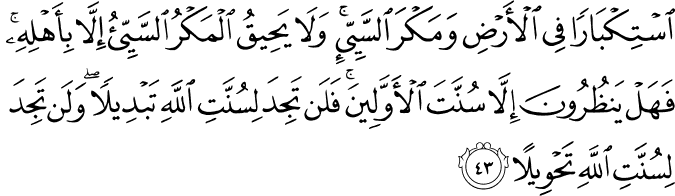 ٱسْتِكْبَارًا فِى ٱلْأَرْضِ وَمَكْرَ ٱلسَّيِّئِ ۚ وَلَا يَحِيقُ ٱلْمَكْرُ ٱلسَّيِّئُ إِلَّا بِأَهْلِهِۦ ۚ
فَهَلْ يَنظُرُونَ إِلَّا سُنَّتَ ٱلْأَوَّلِينَ ۚ فَلَن تَجِدَ لِسُنَّتِ ٱللَّهِ تَبْدِيلًا ۖ وَلَن تَجِدَ
لِسُنَّتِ ٱللَّهِ تَحْوِيلًا ٤٣